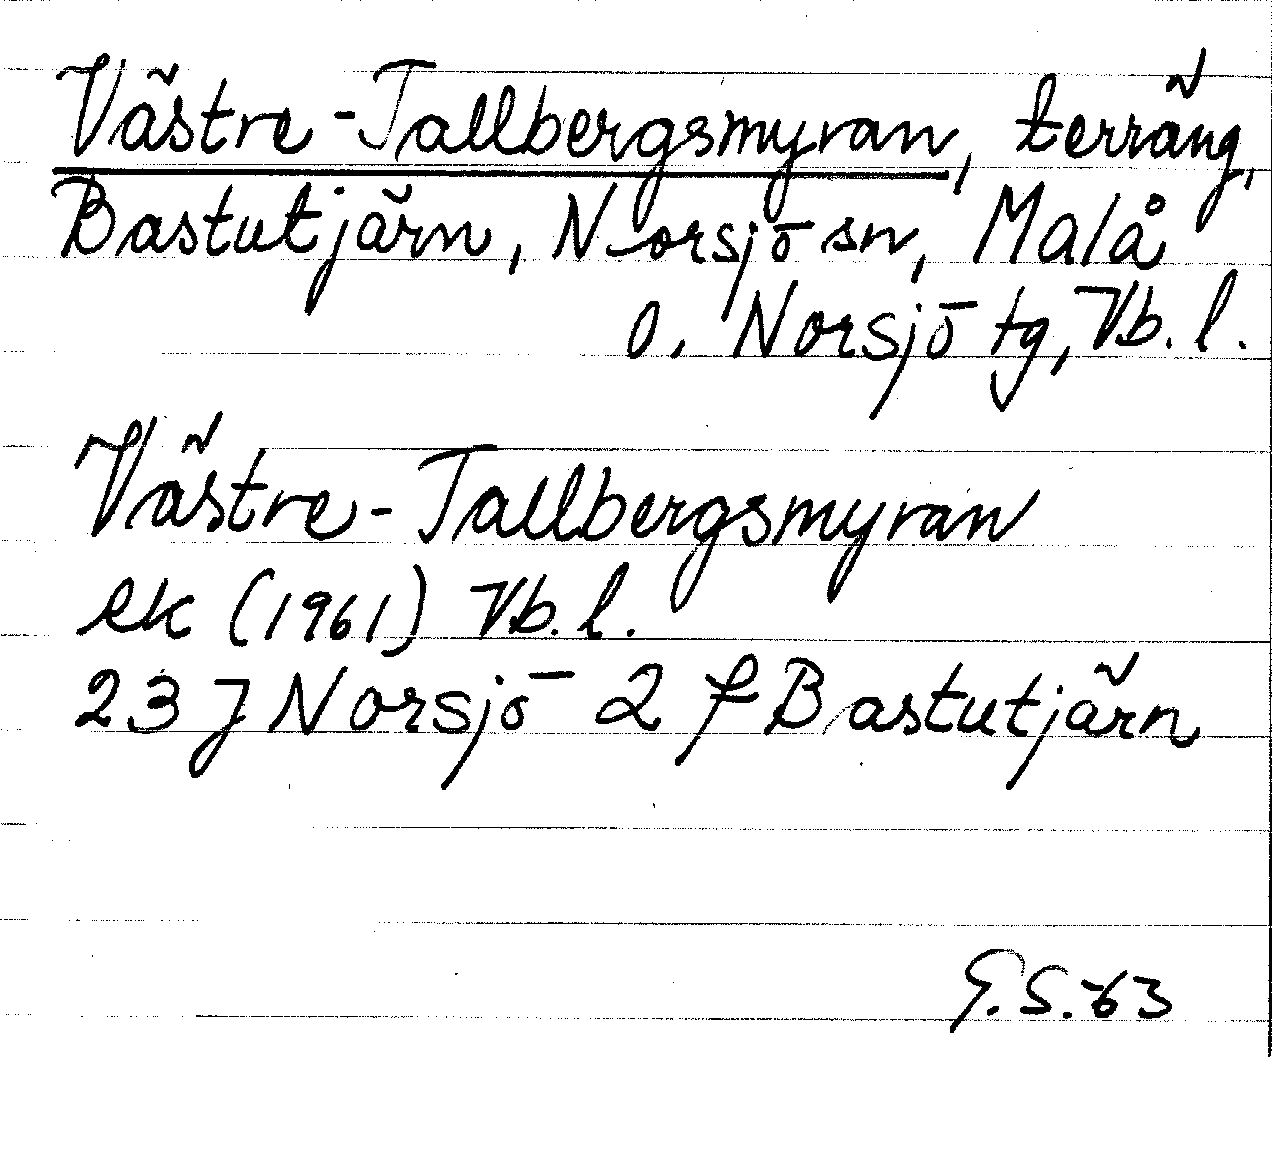 Västre-Tallbergsmyran, terräng,
Bastutjärn, Norsjö sn, Malå
o. Norsjö tg, Vb. l.
Västre-Tallbergsmyran
ek (1961) Vb. l.
23 J Norsjö 2 f Bastutjärn
G.S.-63